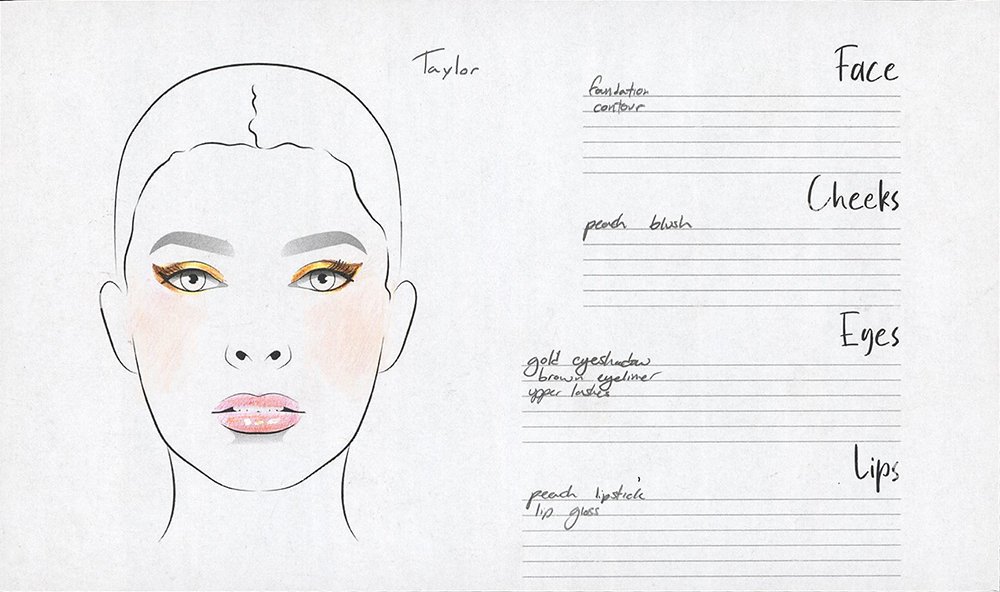 Taylor
Face
foundation
contour
Cheeks
peach blush
Eyes
gold eyeshadow
brown eyeliner
upper lashes
Lips
peach lipstick
lip gloss